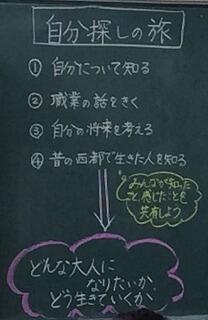 自分探しの旅
① 自分について知る
② 職業の話をきく
③ 自分の将来を考える
④ 昔の西都で生きた人を知る
みんなが知った
こと、感じたことを
共有しよう
どんな大人に
なりたいか
どう生きていくか